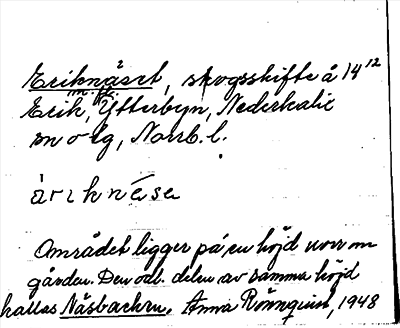 Eriknäset, skogsskifte å 14¹²
m. fl.
Erik, Ytterbyn, Nederkalix
sn o lg, Norrb. l.
äriknésе
Området ligger på en höjd norr om
gården. Den odl. delen av samma höjd
kallas Näsbacken. Anna Rönnquist, 1948